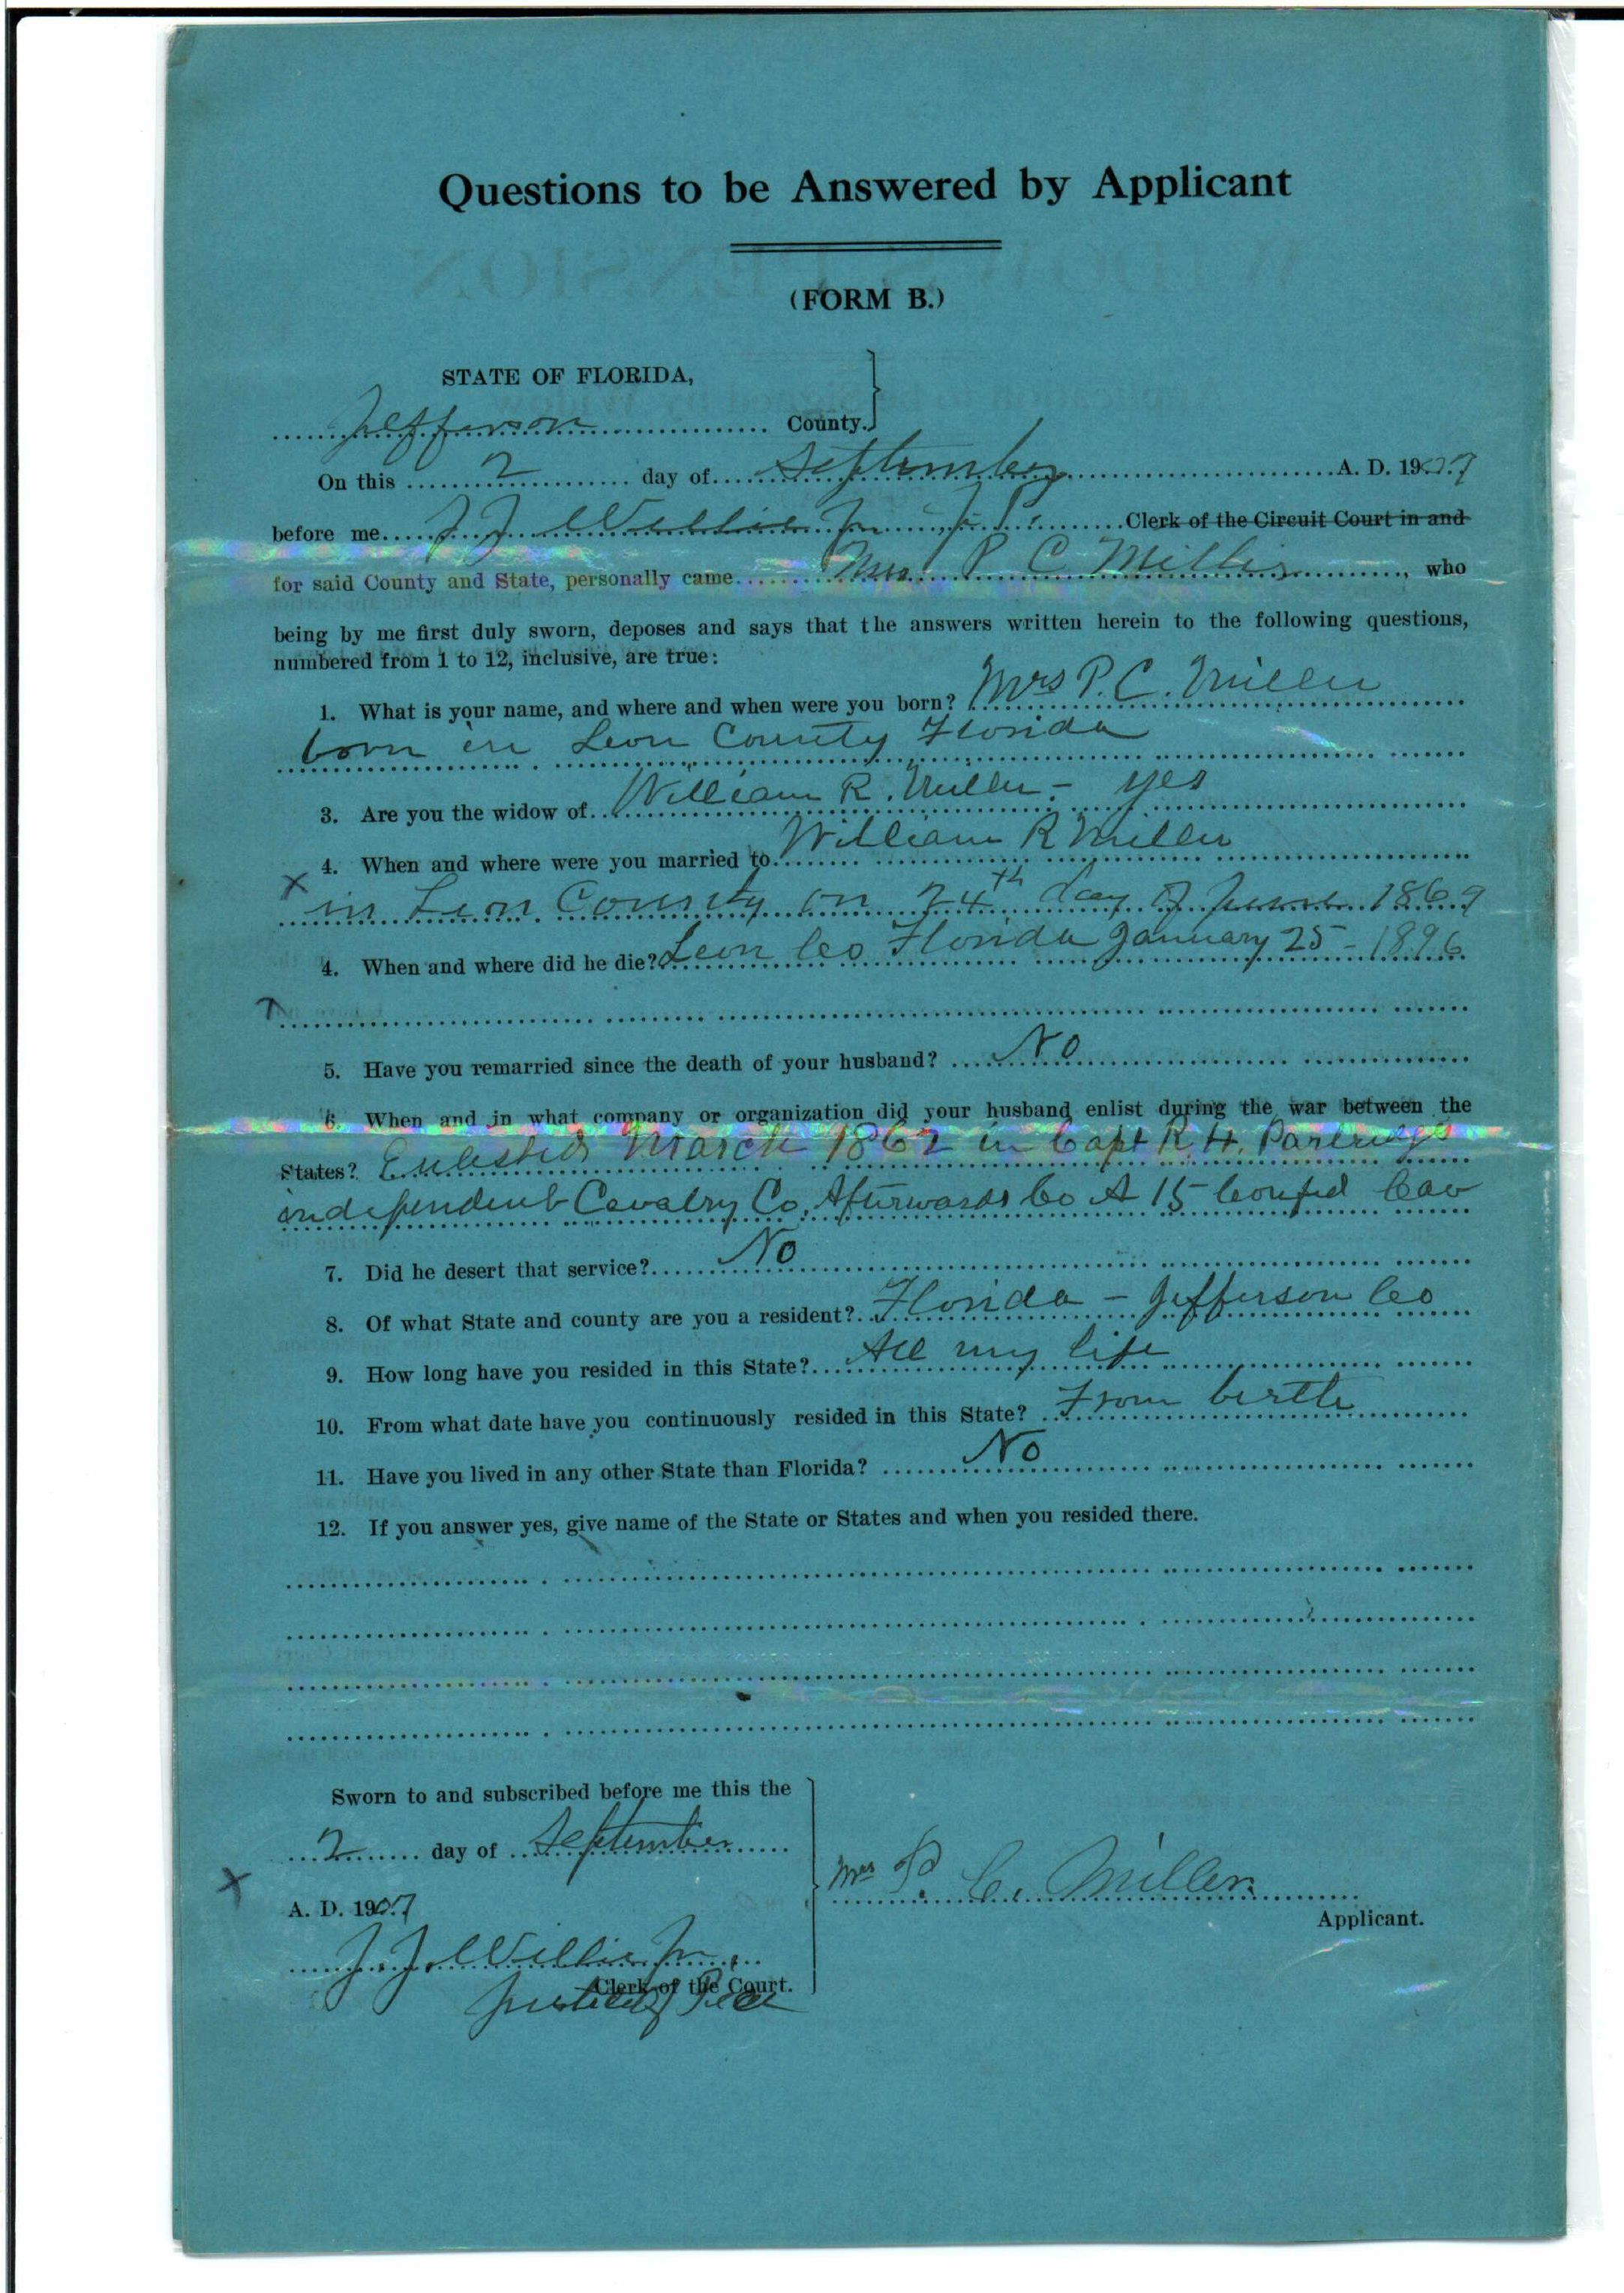 Questions to be Answered by Applicant
(FORM B.)
STATE OF FLORIDA,
Jefferson County.
On this 2 day of September A. D. 1907
before me J. J. Willie Jr. J. P. Clerk of the Circuit Court in and
for said County and State, personally came Mrs P C Miller, who
being by me first duly sworn, deposes and says that the answers written herein to the following questions,
numbered from 1 to 12, inclusive, are true:
1. What is your name, and where and when were you born? Mrs P. C. Miller
born in Leon County Florida
3. Are you the widow of William R. Miller - yes
4. When and where were you married to William R Miller
in Leon County on 24th day of June 1869
4. When and where did he die? Leon Co Florida January 25 - 1896
5. Have you remarried since the death of your husband? No
6. When and in what company or organization did your husband enlist during the war between the
States? Enlisted March 1862 in Capt R. H. Partridge's
independent Cavalry Co. Afterwards Co A 15 Confed Cav
7. Did he desert that service? No
8. Of what State and county are you a resident? Florida - Jefferson Co
9. How long have you resided in this State? All my life
10. From what date have you continuously resided in this State? From birth
11. Have you lived in any other State than Florida? No
12. If you answer yes, give name of the State or States and when you resided there.
Sworn to and subscribed before me this the
2 day of September
A. D. 1907
Mrs P. C. Miller
Applicant.
J. J. Willie Jr.
Clerk of the Court.
Justice of Peace